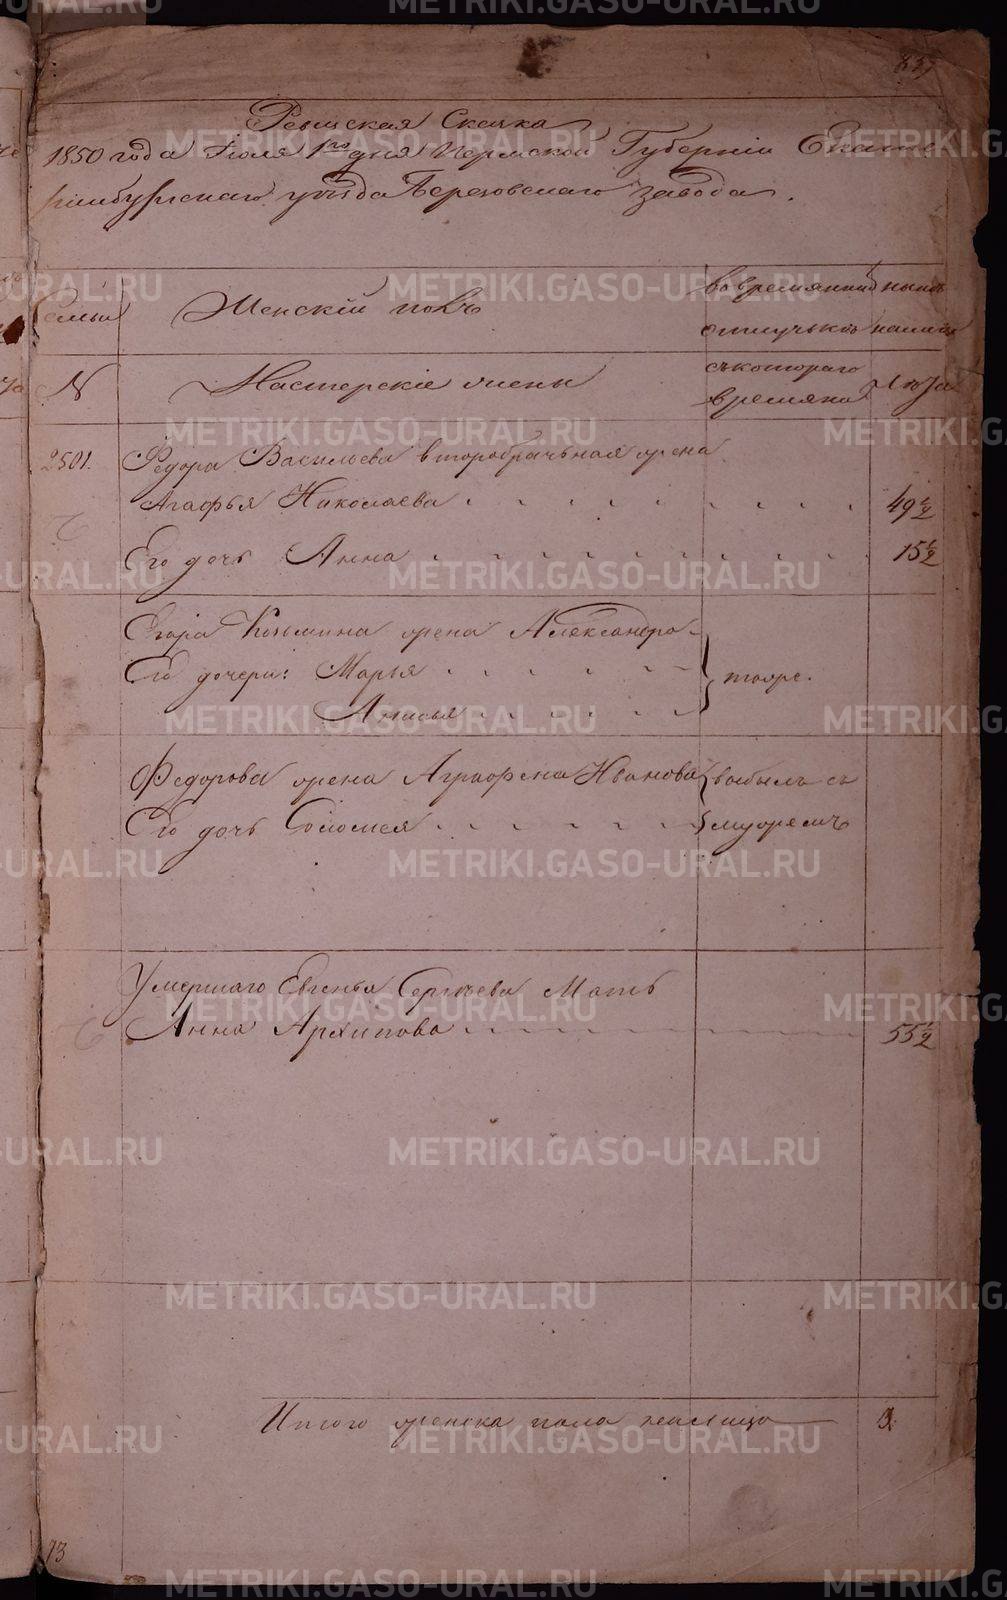 837
Ревижская Скаска
1850 года Июля 1го дня Пермской Губернiи Екате
ринбургскаго уѣзда Березовскаго завода.
Семьи
Женскiй полъ
во временной
отлучькѣ
нынѣ
налицо
N
Мастерскiе жены
съ котораго
времяна
Лѣта
2501.
Федора Васильева второбрачьная жена
Агафья Николаева
49 1/2
Его дочь Анна
15 1/2
Егора Козьмина жена Александра
Его дочери: Марья
тоже.
Анисья
Федорова жена Аграфена Иванова
выбыла съ
Его дочь Соломея
мужемъ
Умершаго Евгенья Сергѣева Мать
Анна Архипова
55 1/2
Итого женска пола налицо
3
73
METRIKI.GASO-URAL.RU